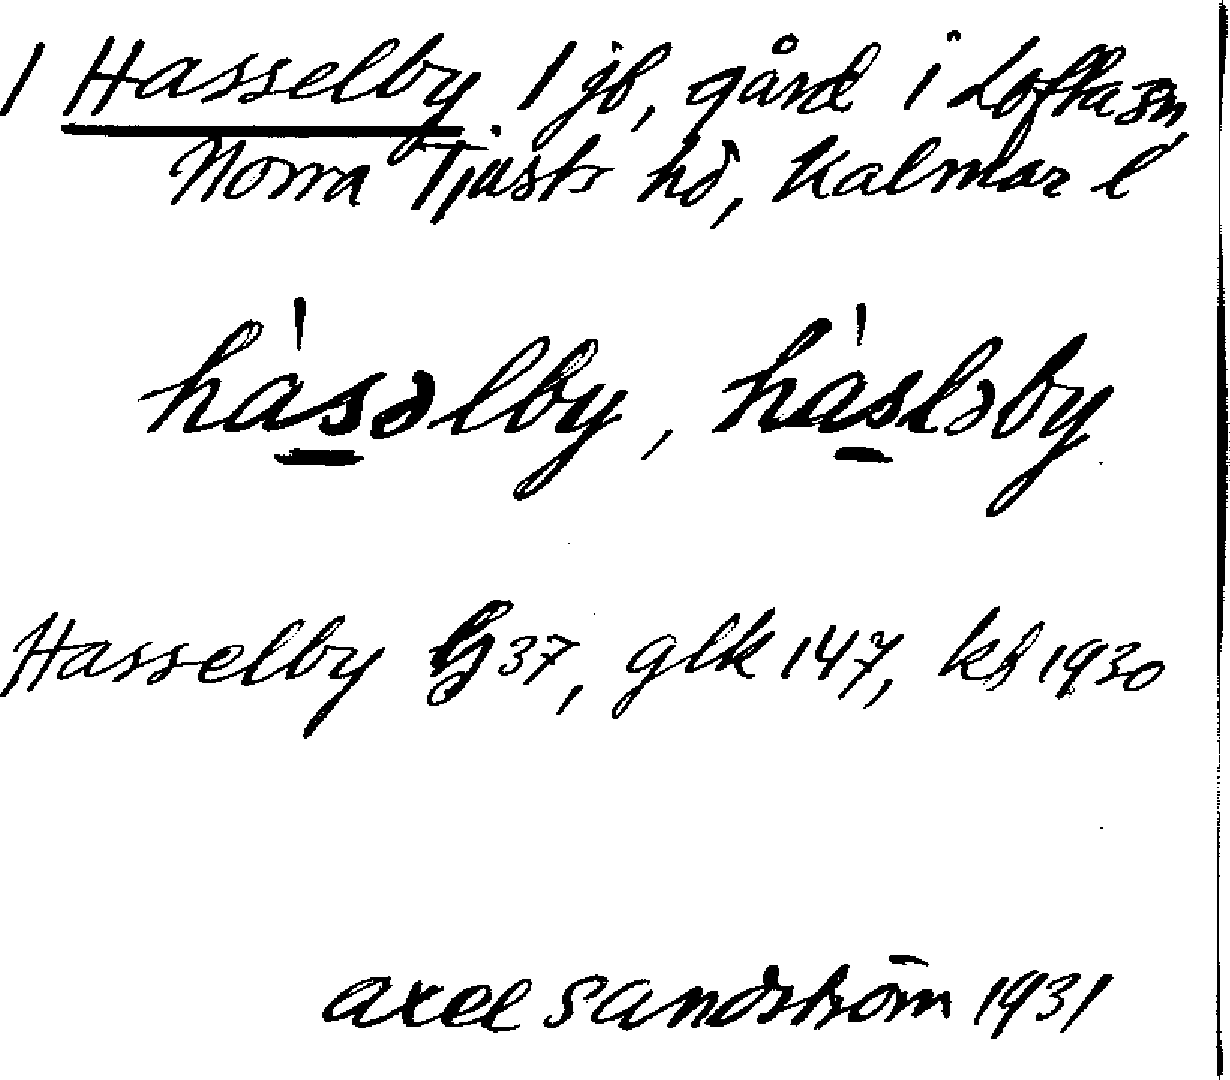 1 Hasselby. 1 jb, gård i Lofta sn,
Norra Tjusts hd, Kalmar l
hásəlby, hásləby
Hasselby G 37, glk 147, kb 1930
Axel Sandström 1931